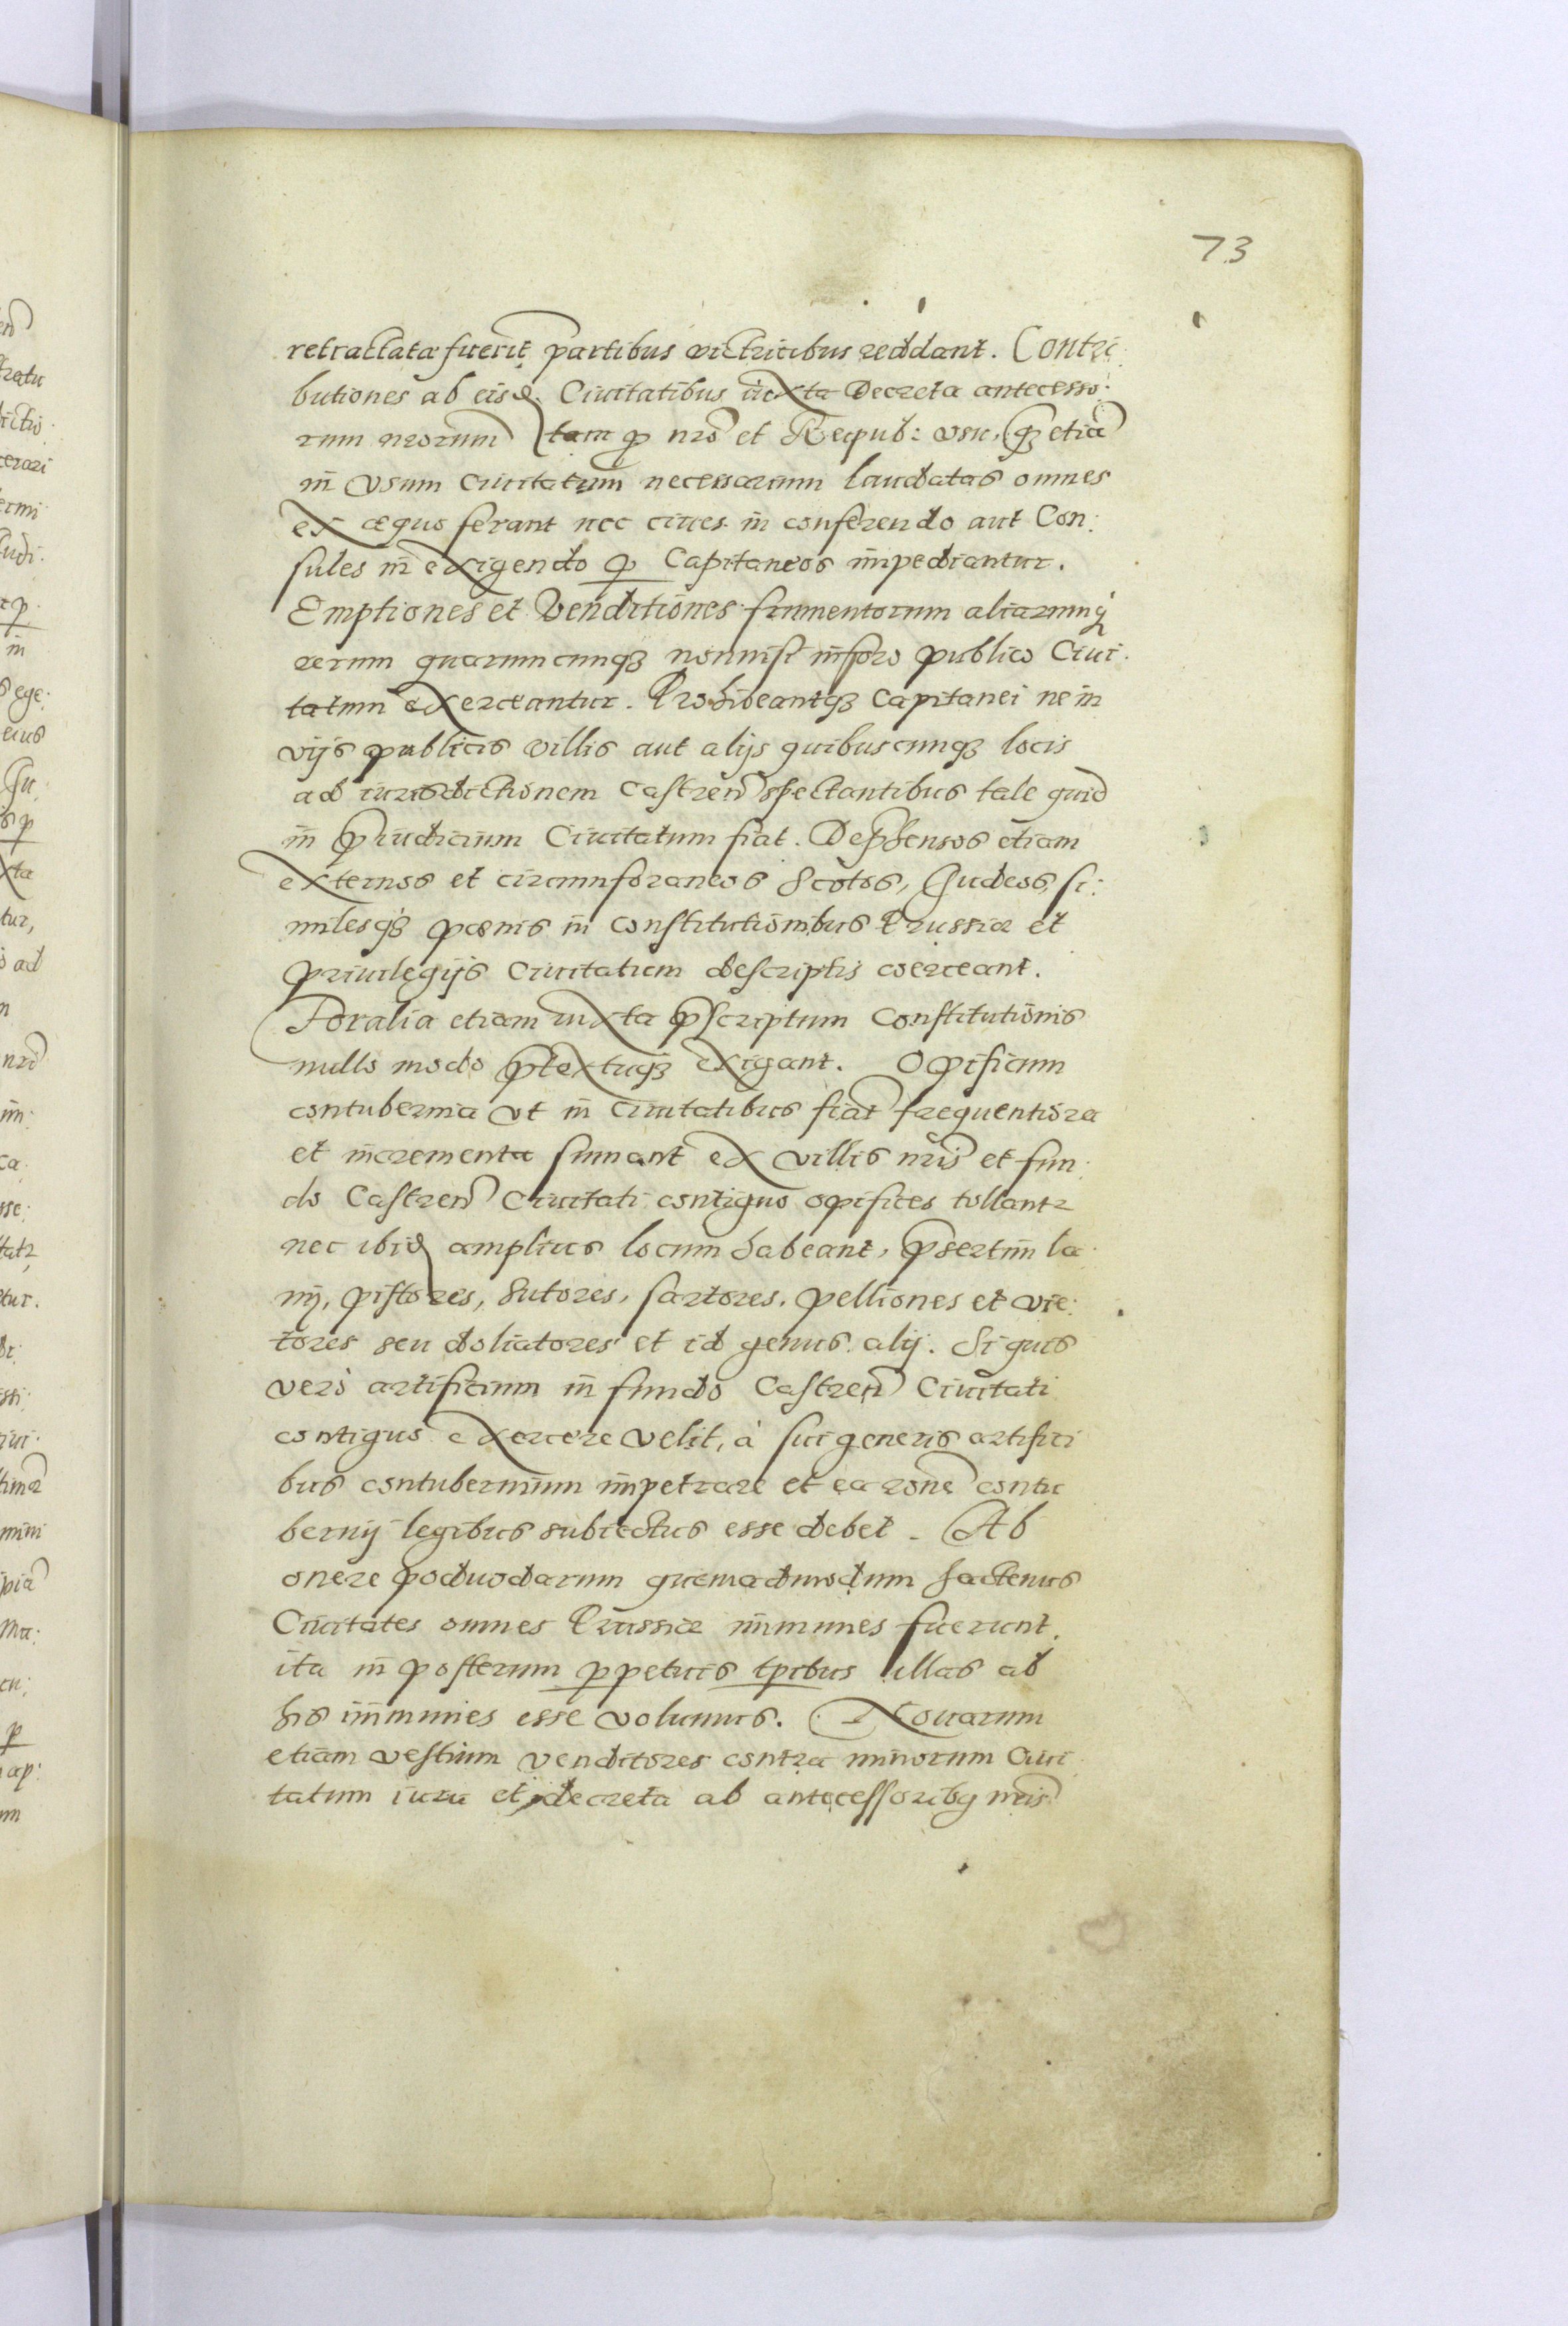 73
retractatæ fuerit partibus victricibus reddant. Contri:
butiones ab eisd. Ciuitatibus iuxta Decreta antecesso:
rum nrorum tam p nro et Reipub: vsu, qz etia
in vsum Ciuitatum necessarium laudatas omnes
ex æquo ferant nec ciues in conferendo aut Con:
sules in exigendo p Capitaneos impediantur.
Emptiones et Venditiones frumentorum aliarumq
rerum quarumcunqz nonnisi in foro publico Ciui:
tatum exerceantur. Prohibeantqz Capitanei ne in
vijs publicis villis aut alijs quibuscunqz locis
ad iurisdictionem Castren spectantibus tale quid
in piudicium Ciuitatum fiat. Dephensos etiam
externos et circumforaneos Scotos, Judeos, si:
milesqz pœnis in Constitutionibus Prussiæ et
priuilegijs Ciuitatum descriptis coerceant.
Foralia etiam iuxta pscriptum Constitutionis
nullo modo ptextuqz exigant. Opificum
contubernia vt in Ciuitatibus fiat frequentiora
et incrementa sumant ex villis nris et fun:
do Castren Ciuitati contiguo opifices tollantr
nec ibid amplius locum habeant, psertim la:
nij, pistores, Sutores, sartores, pelliones et vie:
tores seu doliatores et id genus alij. Siquis
verò artificium in fundo Castren Ciuitati
contiguo exercere velit, à sui generis artifici
bus contubernium impetrare et ea rone contu
bernij legibus subiectus esse debet. Ab
onere podwodarum quemadmodum hactenus
Ciuitates omnes Prussiæ immunes fuerunt,
ita in posterum ppetuis tpibus illas ab
his immunes esse volumus. Nouarum
etiam vestium venditores contra minorum Ciui
tatum iura et decreta ab antecessoribq nris